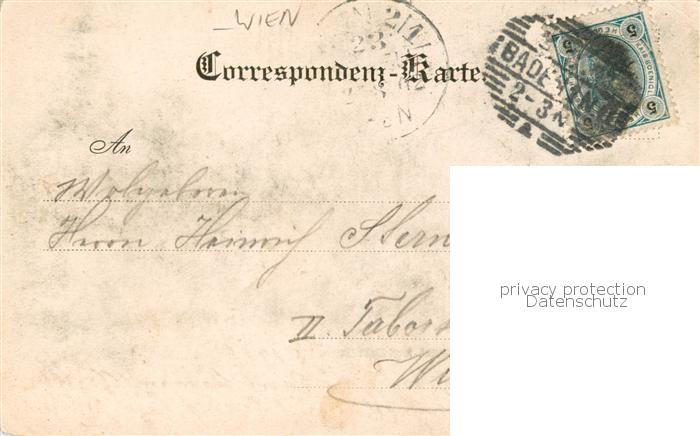 WIEN
Correspondenz-Karte.
BADEN
2-3N
5
5
5
An
Wolgeboren
Herrn Heinrich Stern
II. Tabors
Wi
privacy protection
Datenschutz